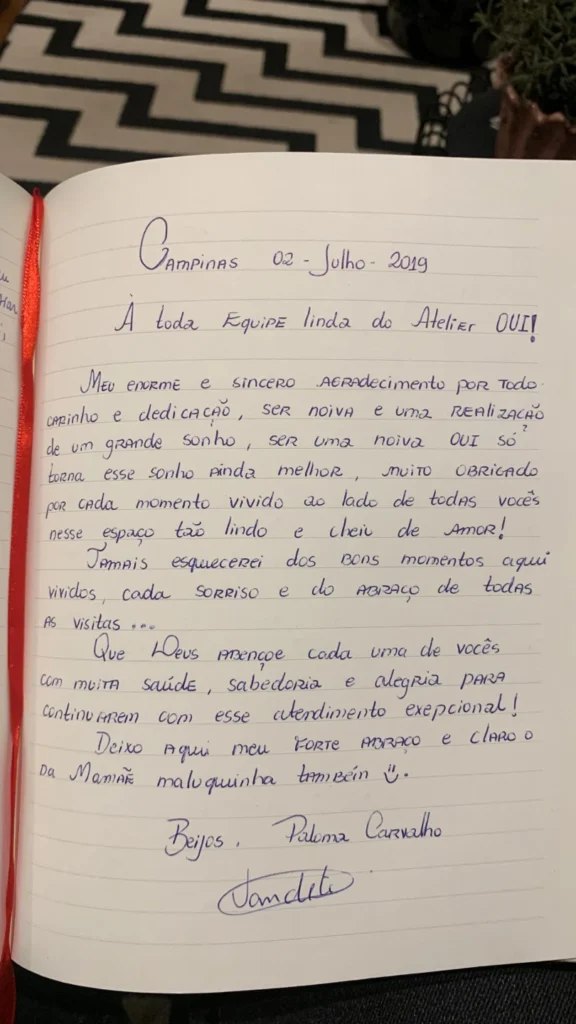 Campinas 02 - Julho - 2019
À toda Equipe linda do Atelier OUI!
Meu enorme e sincero agradecimento por todo
carinho e dedicação, ser noiva e uma realização
de um grande sonho, ser uma noiva OUI só
torna esse sonho ainda melhor, muito obrigado
por cada momento vivido ao lado de todas vocês
nesse espaço tão lindo e cheiu de amor!
Jamais esquecerei dos bons momentos aqui
vividos, cada sorriso e do abraço de todas
as visitas ...
Que Deus abençoe cada uma de vocês
com muita saúde, sabedoria e alegria para
continuarem com esse atendimento exepcional!
Deixo aqui meu forte abraço e claro o
da Mamãe maluquinha também
Beijos, Paloma Carvalho